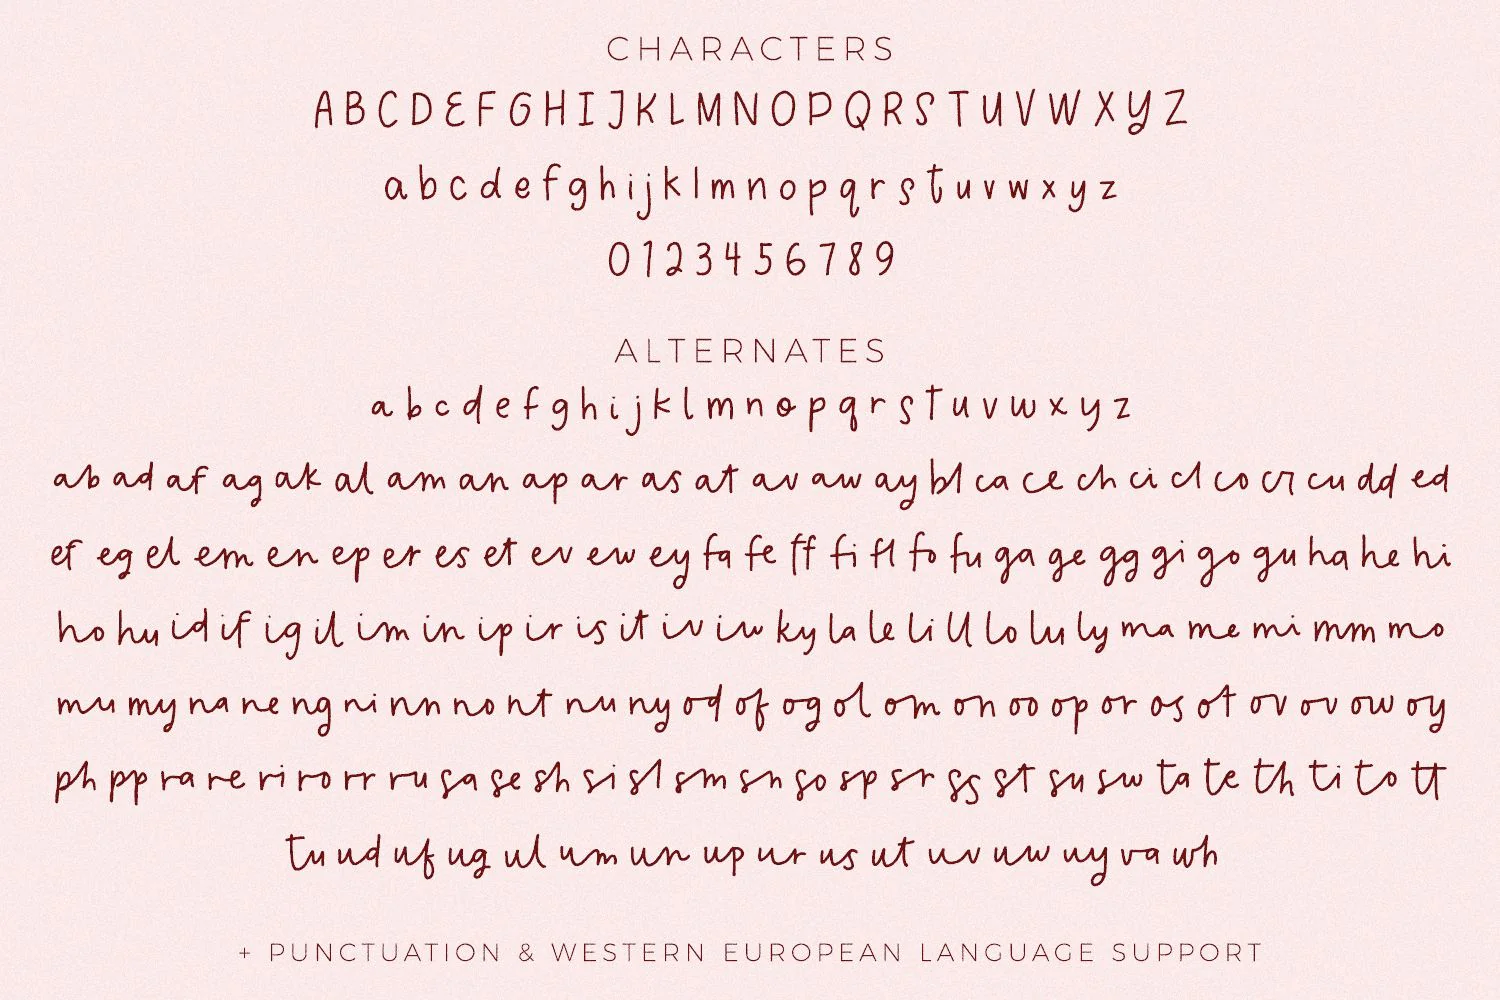 CHARACTERS
A B C D E F G H I J K L M N O P Q R S T U V W X Y Z
a b c d e f g h i j k l m n o p q r s t u v w x y z
0 1 2 3 4 5 6 7 8 9
ALTERNATES
a b c d e f g h i j k l m n o p q r s t u v w x y z
ab ad af ag ak al am an ap ar as at av aw ay bl ca ce ch ci cl co cr cu dd ed
ef eg el em en ep er es et ev ew ey fa fe ff fi fl fo fu ga ge gg gi go gu ha he hi
ho hu id if ig il im in ip ir is it iv iw ky la le li ll lo lu ly ma me mi mm mo
mu my na ne ng ni nn no nt nu ny od of og ol om on oo op or os ot ov ov ow oy
ph pp ra re ri ro rr ru sa se sh si sl sm sn so sp sr ss st su sw ta te th ti to tt
tu ud uf ug ul um un up ur us ut uv uw uy va wh
+ PUNCTUATION & WESTERN EUROPEAN LANGUAGE SUPPORT